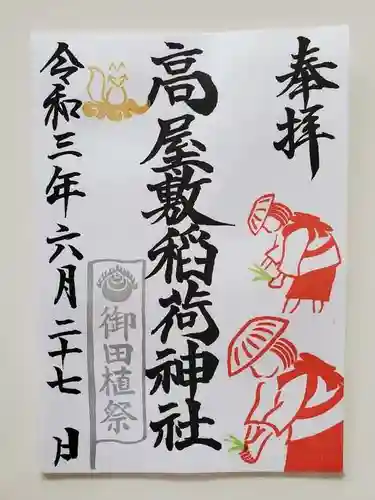 奉拝
高屋敷稲荷神社
御田植祭
令和三年六月二十七日